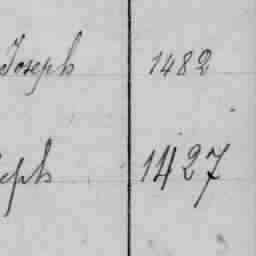 Joseph 1482
eph 1427